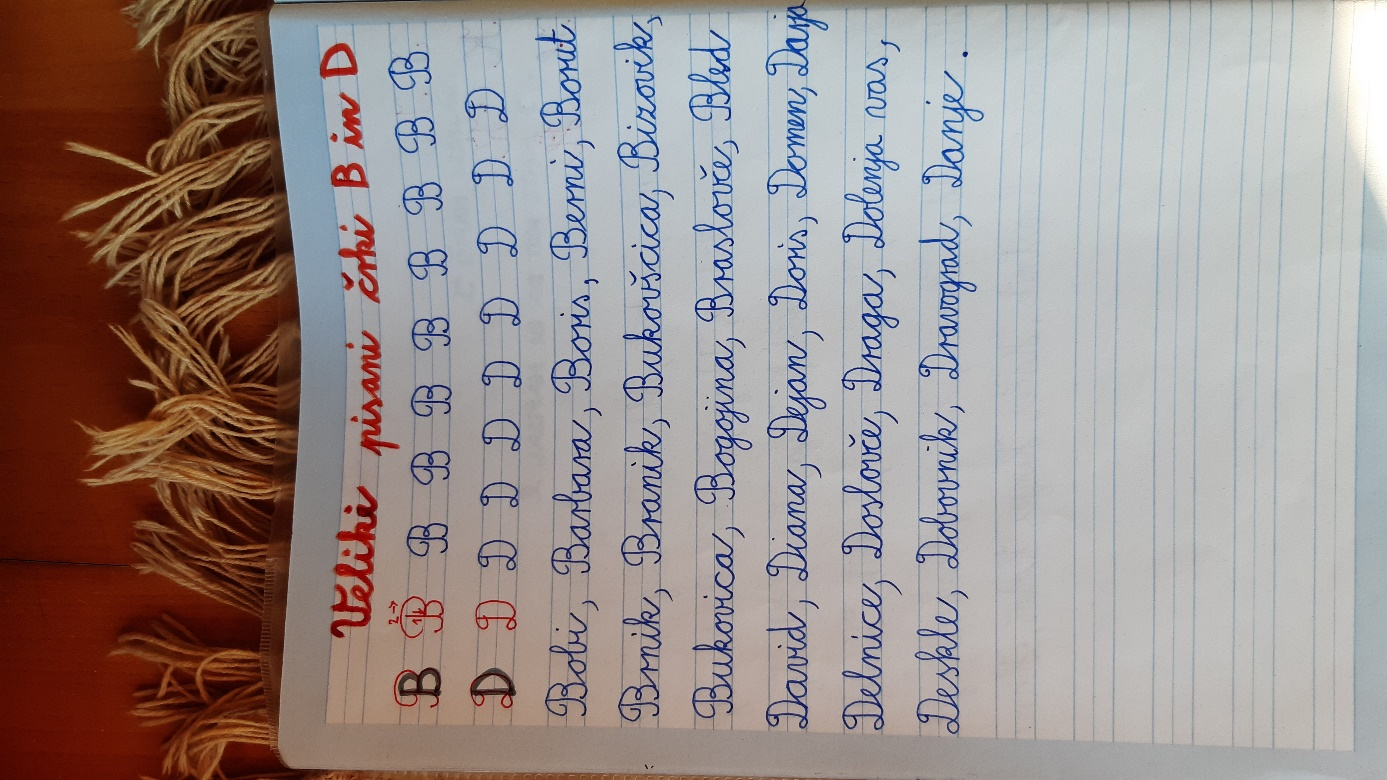 Velike pisani črki B in D
B B B B B B B B B B
D D D D D D D D D D
Bobi, Barbara, Boris, Berni, Borut
Brnik, Branik, Bukovščica, Bizovik,
Bukovica, Bogojina, Braslovče, Bled
David, Diana, Dejan, Doris, Domen, Daja
Delnice, Doslovče, Draga, Dolenja vas,
Deskle, Dobrovnik, Dravograd, Danje.